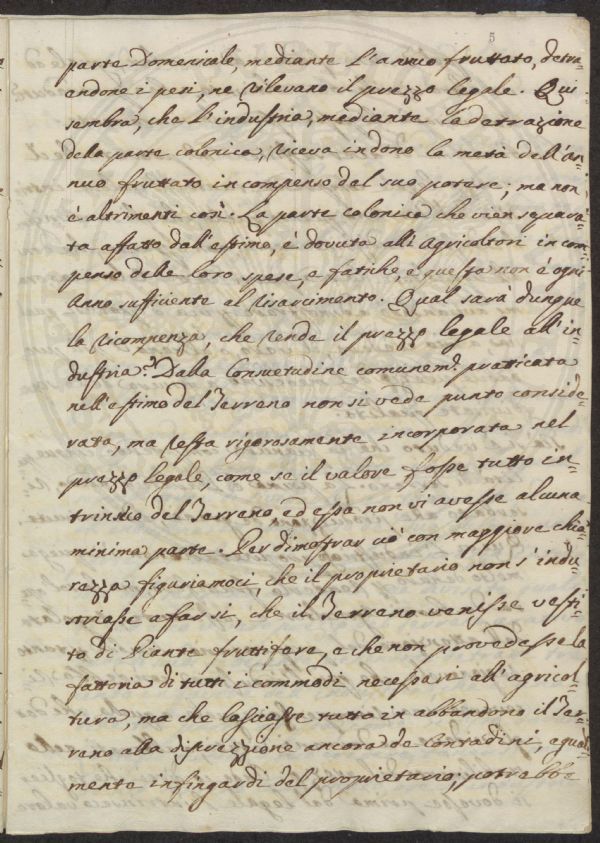 5
parte Domenicale, mediante l'annuo fruttato, detra=
endone i pesi, ne rilevano il prezzo legale. Qui
sembra, che l'industria, mediante la detrazione
della parte colonica, riceva in dono la metà dell'an=
nuo fruttato in compenso del suo potere; ma non
è altrimenti così. La parte colonica che vien separa=
ta affatto dall'estimo, è dovuta alli Agricoltori in com=
penso delle loro spese, e fatiche, e questa non è ogni
Anno sufficiente al risarcimento. Qual sarà dunque
la ricompenza, che rende il prezzo legale all'in=
dustria? Dalla Consuetudine comunem.e praticata
nell'estimo del Terreno non si vede punto conside=
rata, ma resta rigorosamente incorporata nel
prezzo legale, come se il valore fosse tutto in=
trinsico del Terreno, ed essa non vi avesse alcuna
minima parte. Per dimostrar ciò con maggiore chia=
rezza figuriamoci, che il proprietario non s'indu=
striasse a far si, che il Terreno venisse vesti=
to di Piante fruttifare, e che non provedesse la
fattoria di tutti i commodi necessari all'agricol=
tura, ma che lasciasse tutto in abbandono il Ter=
reno alla disprezzione ancora de Contadini, equal=
mente infingardi del proprietario; potrebbe